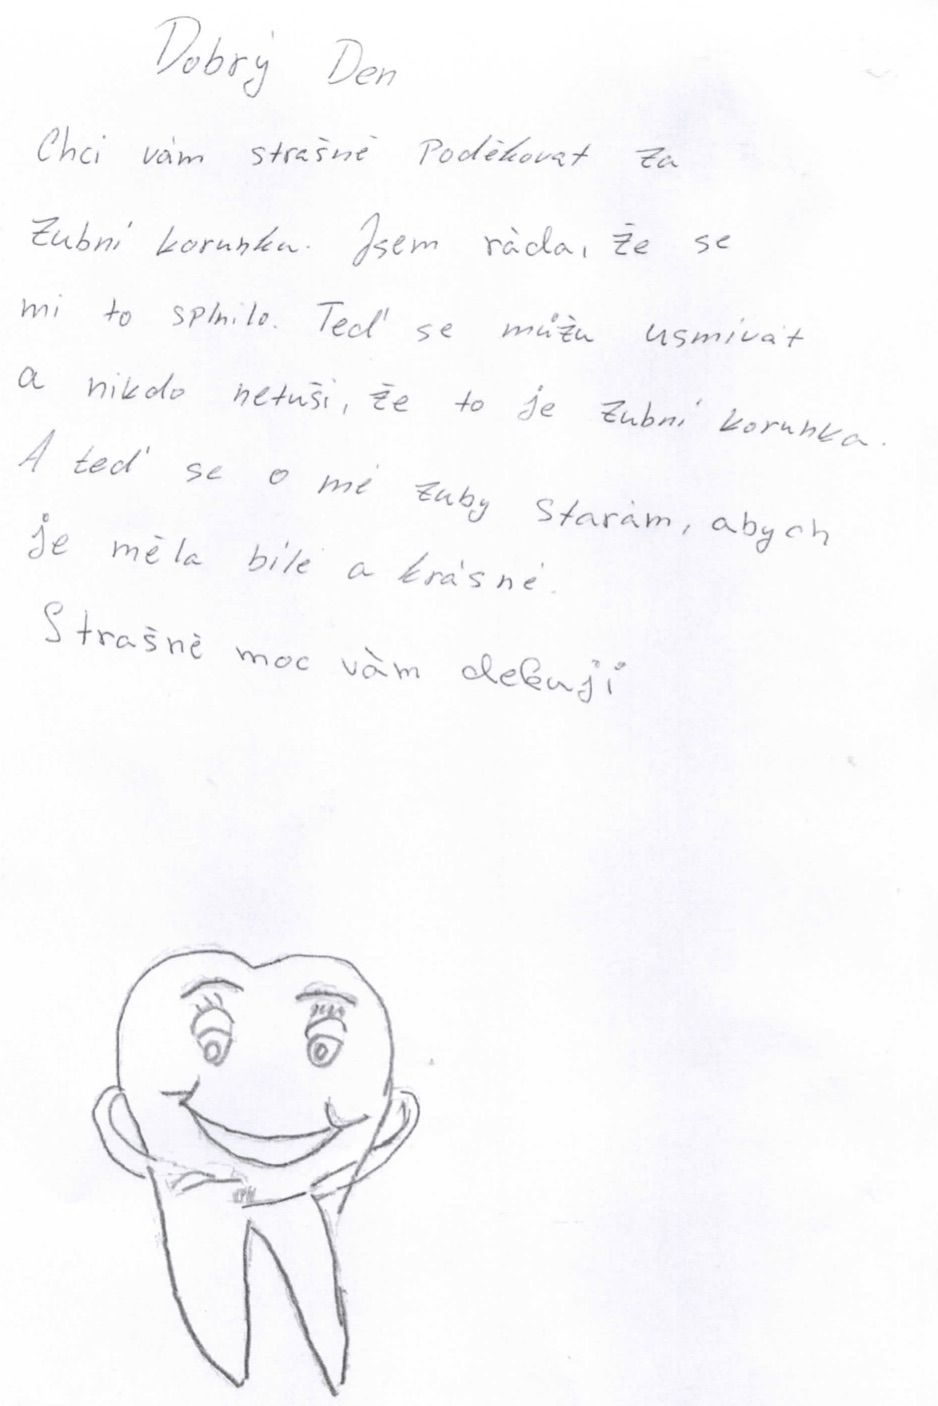 Dobrý Den
Chci vám strašně Poděkovat za
Zubní korunku. Jsem ráda, že se
mi to splnilo. Teď se můžu usmívat
a nikdo netuší, že to je zubní korunka.
A teď se o mé zuby starám, abych
je měla bílé a krásné.
Strašně moc vám dekuji